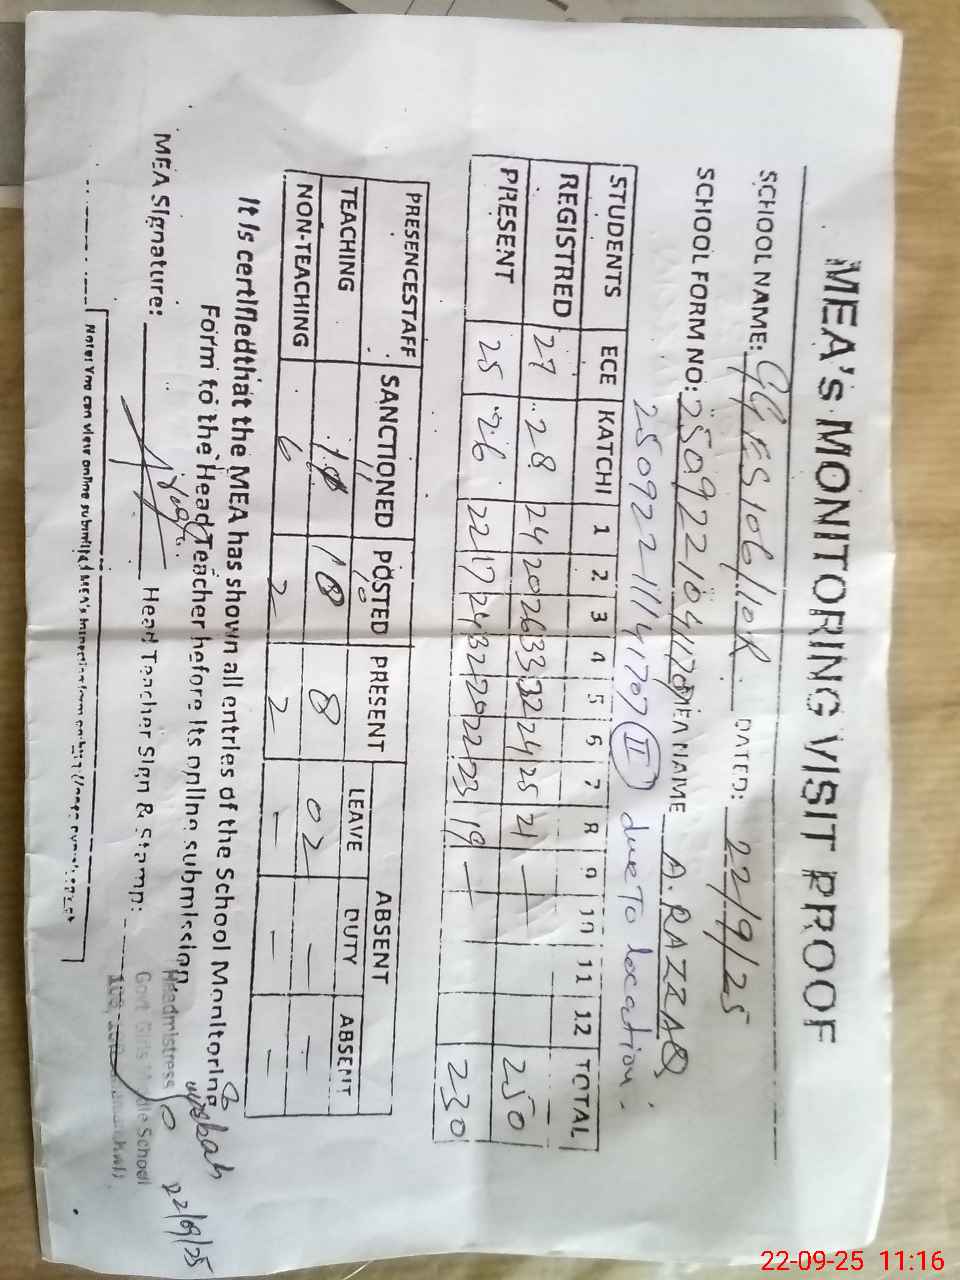 MEA's MONITORING VISIT PROOF
SCHOOL NAME: GGES 106/10R DATED: 22/9/25
SCHOOL FORM NO: MEA NAME A. RAZZAQ
250922111141707 II due To location.
STUDENTS ECE KATCHI 1 2 3 4 5 6 7 8 9 10 11 12 TOTAL
REGISTRED 27 28 24 20 26 33 32 24 25 21 — 250
PRESENT 25 26 22 17 24 32 20 22 23 19 — 230
PRESENCESTAFF SANCTIONED POSTED PRESENT ABSENT
LEAVE DUTY ABSENT
TEACHING 8 02 — —
NON-TEACHING 6 2 2 — — —
It is certifiedthat the MEA has shown all entries of the School Monitoring
Form to the Head Teacher before its online submission
MEA Signature: Head Teacher Sign & Stamp:
Headmistress
Govt Girls Middle School
22/09/25
Note: You can view online submitted MEA's inspection form on
22-09-25 11:16